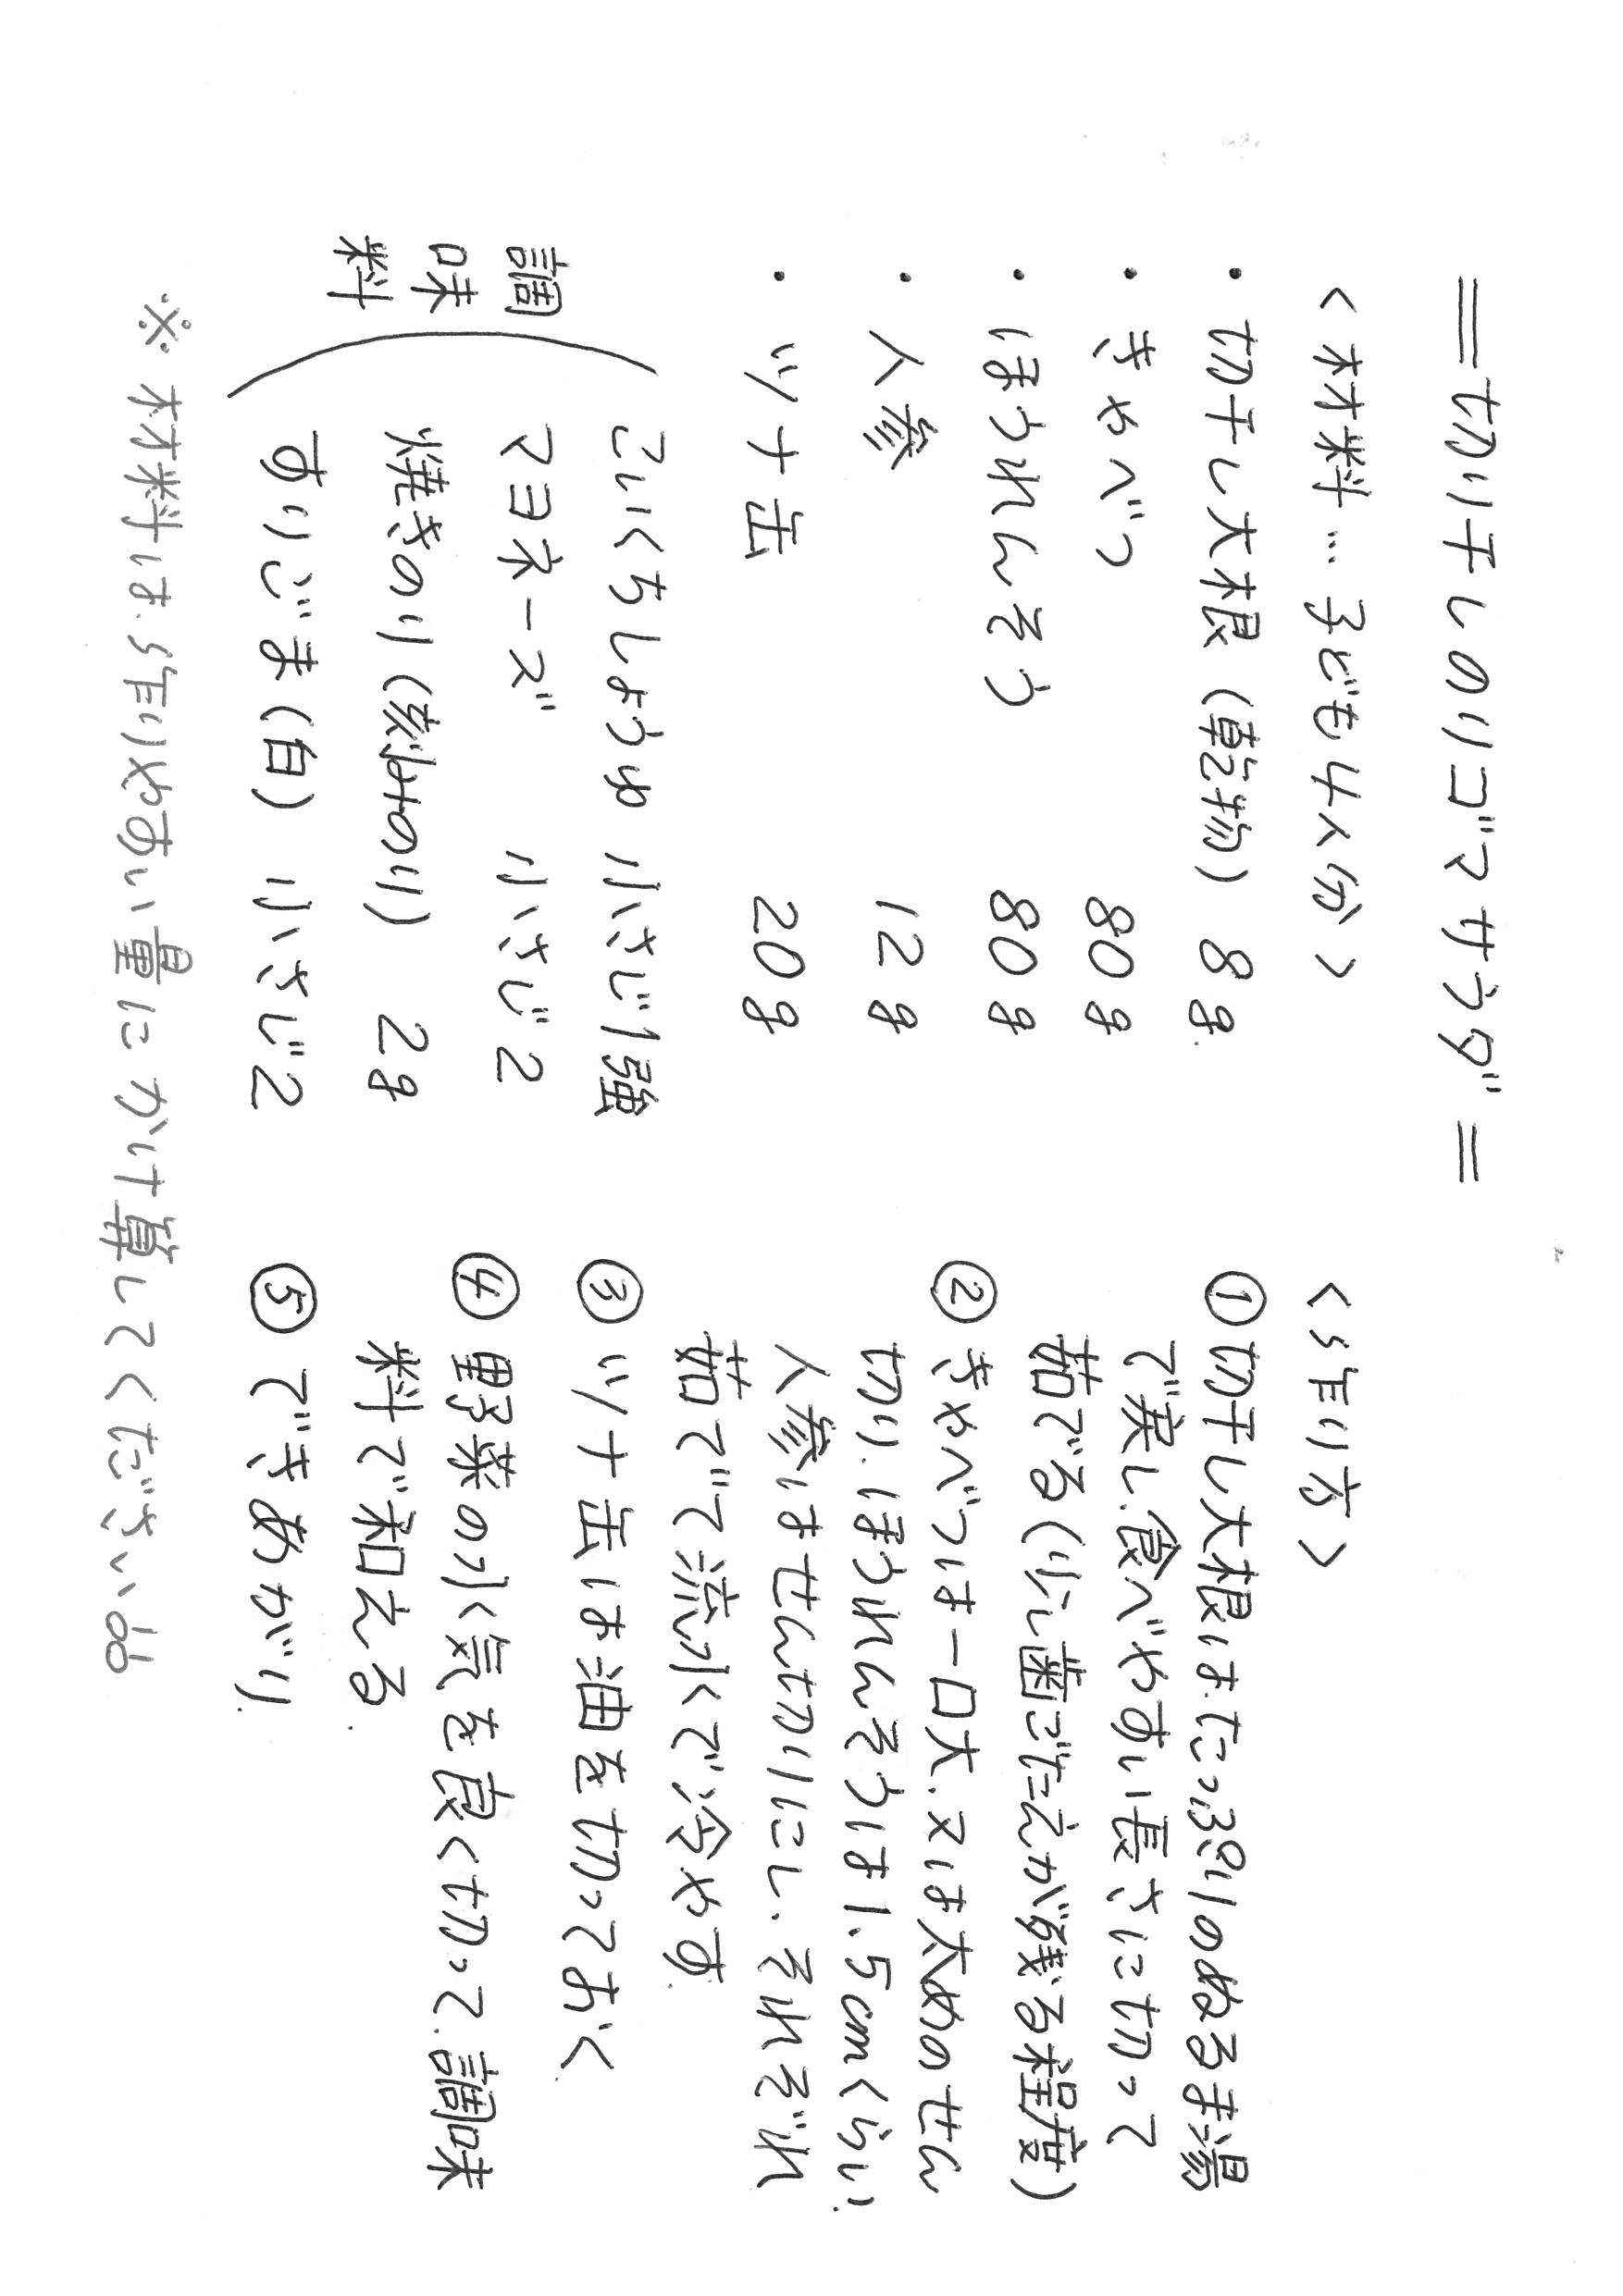 =切り干しのりゴマサラダ=
<材料…子ども4人分>
・切干し大根(乾物) 8g
・きゃべつ 80g
・ほうれんそう 80g
・人参 12g
・ツナ缶 20g
調味料
こいくちしょうゆ 小さじ1強
マヨネーズ 小さじ2
焼きのり(刻みのり) 2g
すりごま(白) 小さじ2
<作り方>
①切干し大根は、たっぷりのぬるま湯
で戻し、食べやすい長さに切って
茹でる(少し歯ごたえが残る程度)
②きゃべつは一口大、又は太めのせん
切り、ほうれんそうは1.5cmくらい、
人参はせん切りにし、それぞれ
茹でて流水で冷やす.
③ツナ缶は油を切っておく.
④野菜の水気を良く切って、調味
料で和える.
⑤できあがり.
※材料は、作りやすい量にかけ算してください